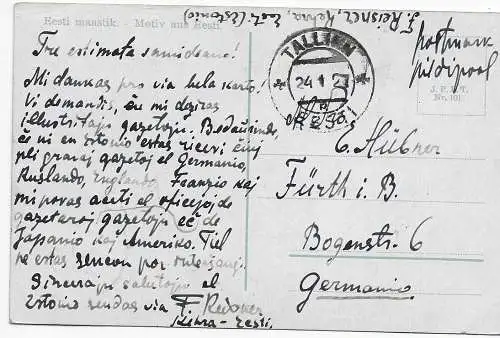 Eesti maastik. - Motiv aus Eesti.
F. Reisner, Kehra, Eesti (Estonio)
Tre estimata samideano!
Mi dankas pro via bela karto!
Vi demandis, ĉu mi deziras
illustritajn gazetojn. Bedaŭrinde,
ĉe ni en Estonio estas ricevi ĉiuj
pli gravaj gazetoj el Germanio,
Ruslando, Englando, Franzio kaj
mi povas aĉeti el oficejo de
gazetaroj gazetojn eĉ de
Japanio kaj Ameriko. Tiel
ne estas sencon por interŝanĝi.
Sincerajn salutojn el
Estonio sendas via F. Reisner
Kehra - Eesti.
TALLINN
24.1.2
postmark
pildipool
J. P. & T.
Nr. 101
E. Hübner
Fürth i. B.
Bogenstr. 6
Germanio